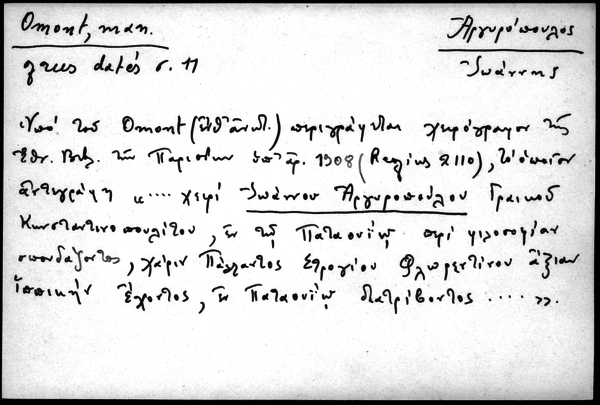 Omont, man.
grecs datés σ. 11
Ἀργυρόπουλος
Ἰωάννης
Ὑπό τοῦ Omont (ἔνθ' ἀνωτ.) περιγράφεται χειρόγραφον τῆς
Ἐθν. Βιβ. τῶν Παρισίων ὑπ' ἀρ. 1908 (Regius 2110), τό ὁποῖον
ἀντεγράφη «.... χειρί Ἰωάννου Ἀργυροπούλου Γραικοῦ
Κωνσταντινοπολίτου, ἐν τῷ Παταουίῳ περί φιλοσοφίαν
σπουδάζοντος, χάριν Πάλλαντος Στρογίου Φλωρεντίνου ἀξίαν
ἱππικήν ἔχοντος, ἐν Παταουίῳ διατρίβοντος .....».